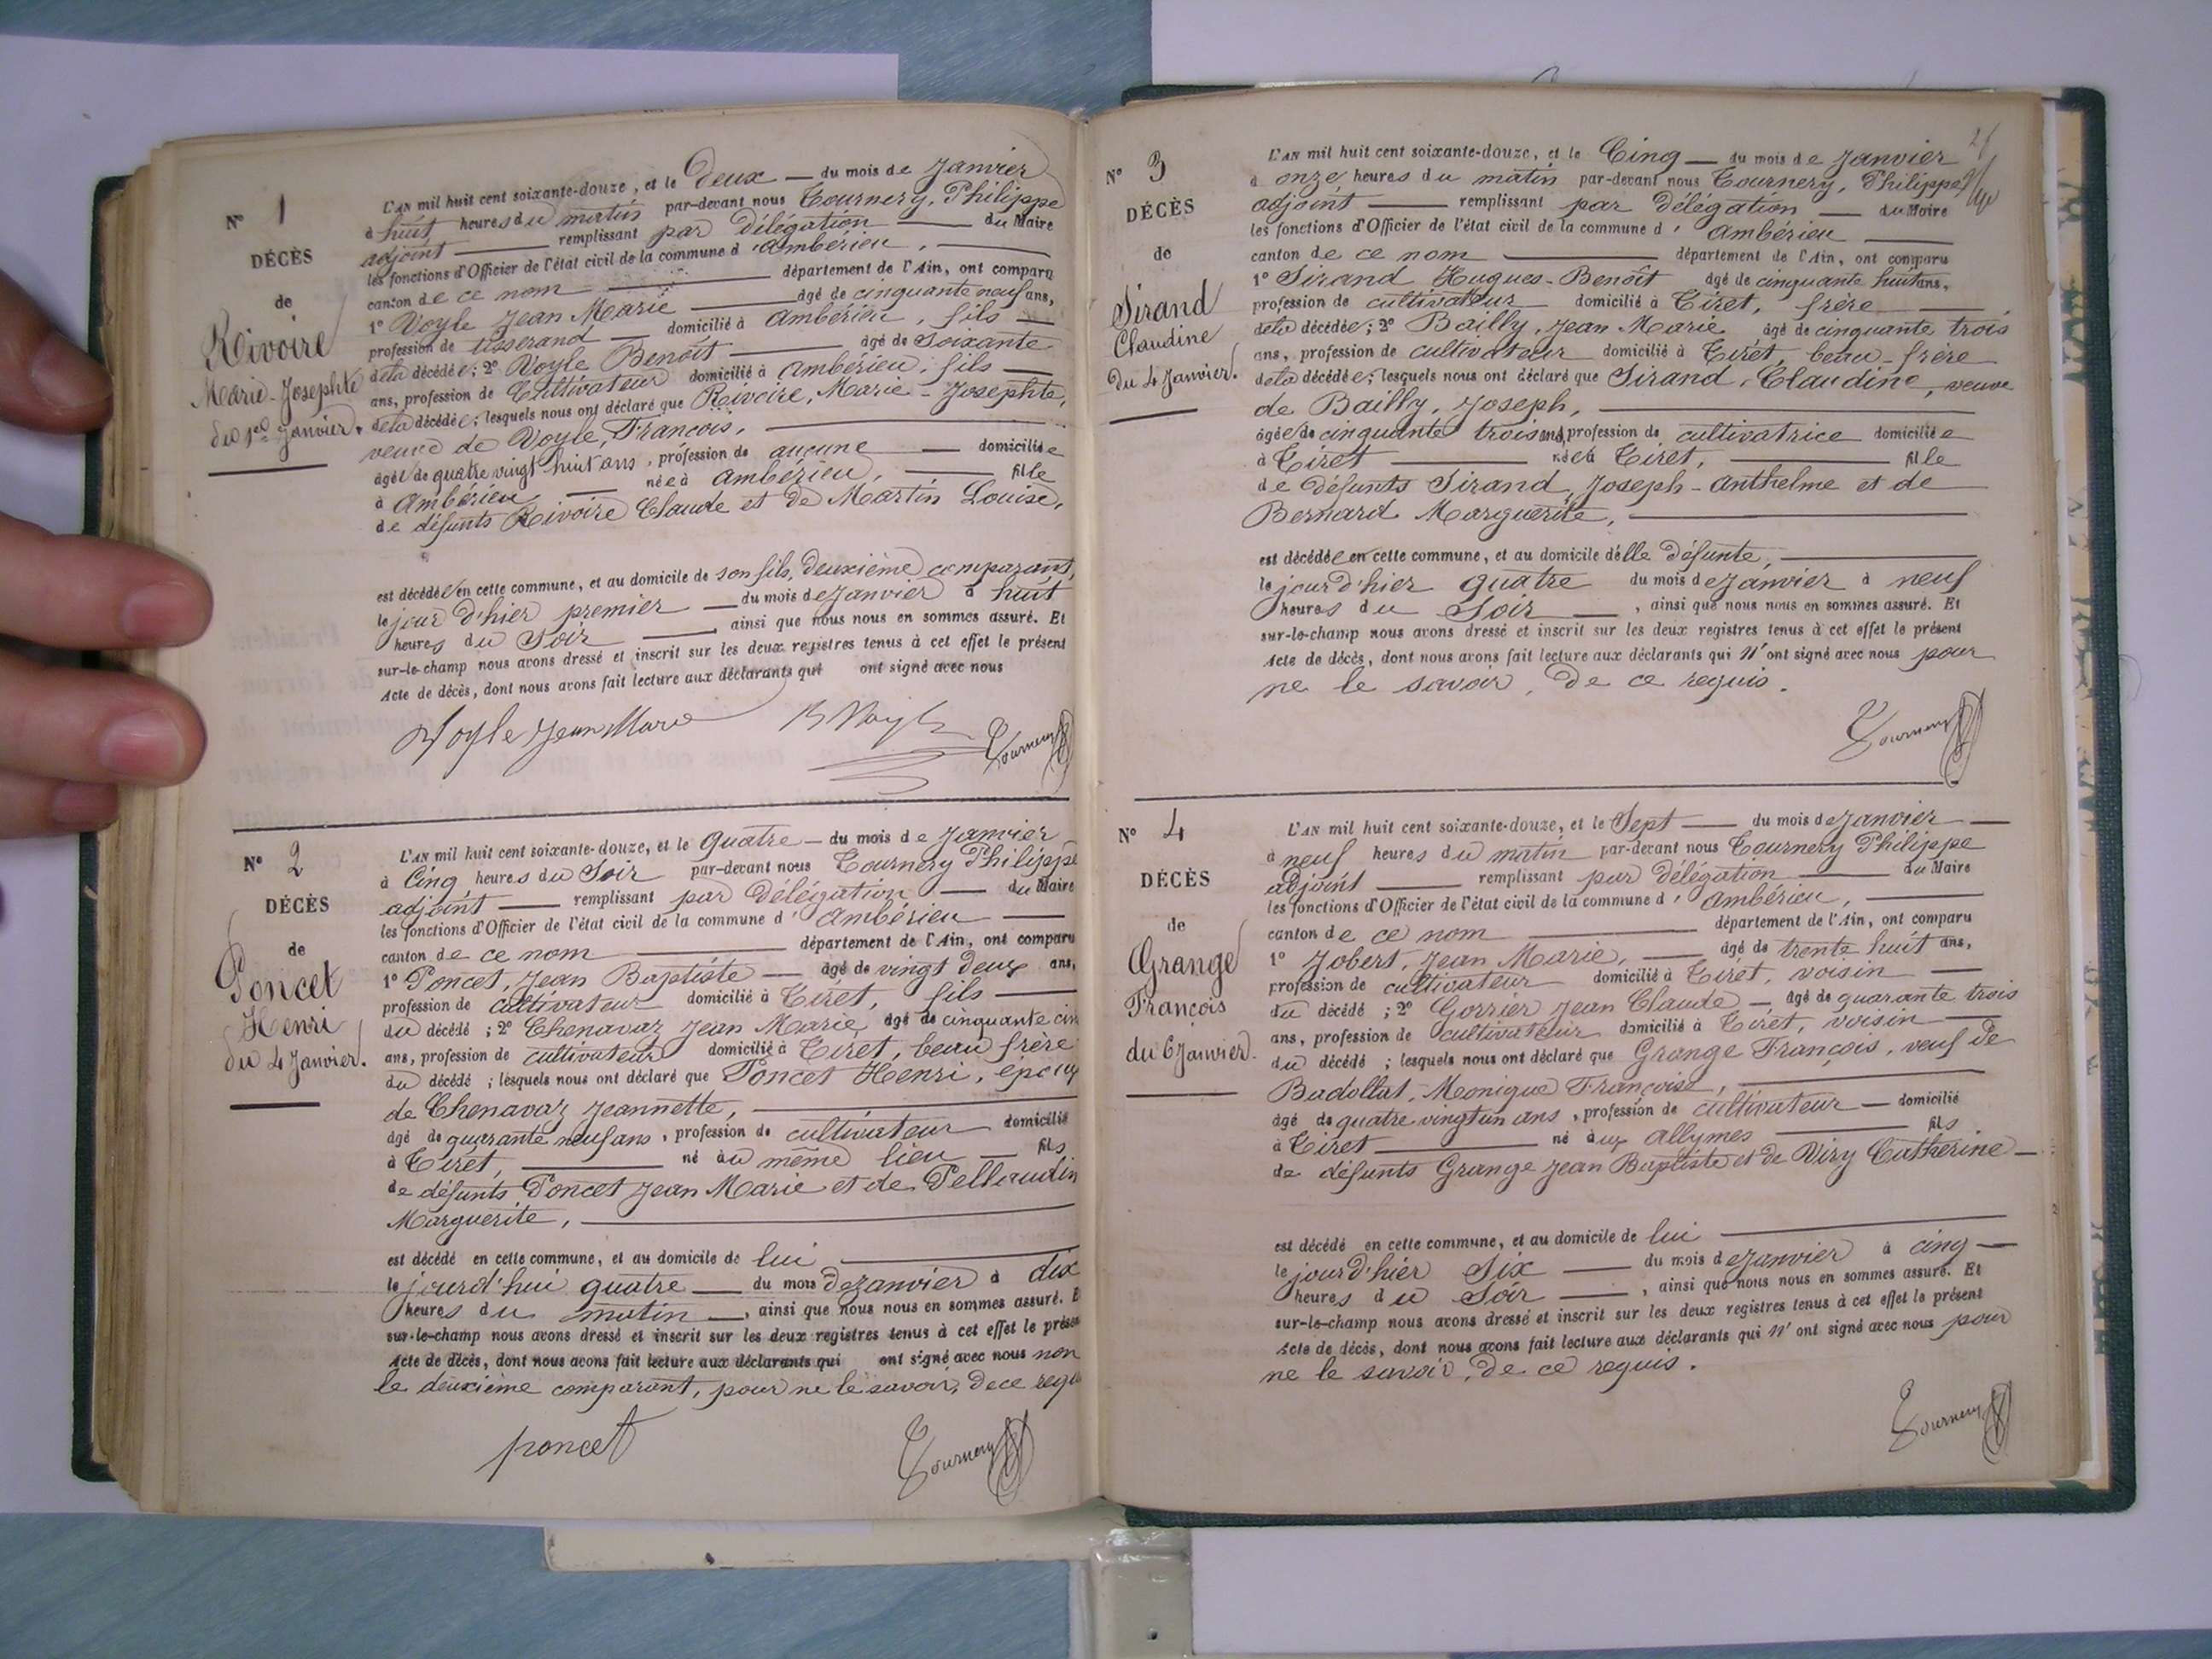 N° 1
DÉCÈS
de
Rivoire
Marie-Josephte
du 1er Janvier.
L'AN mil huit cent soixante-douze, et le Deux — du mois de Janvier
à huit heures du matin par-devant nous Tournery, Philippe
adjoint — remplissant par délégation — du Maire
les fonctions d'Officier de l'état civil de la commune d'Ambérieu, —
canton de ce nom — département de l'Ain, ont comparu
1° Voyle Jean Marie — âgé de cinquante neuf ans,
profession de tisserand — domicilié à Ambérieu, fils —
de la décédée; 2° Voyle Benoît — âgé de Soixante
ans, profession de Cultivateur domicilié à Ambérieu, fils —
de la décédée; lesquels nous ont déclaré que Rivoire, Marie-Josephte,
veuve de Voyle, François, —
âgée de quatre vingt huit ans, profession de aucune — domiciliée
à Ambérieu — née à Ambérieu, — fille
de défunts Rivoire Claude et de Martin Louise,
est décédée en cette commune, et au domicile de son fils, deuxième comparant,
le jour d'hier premier — du mois de Janvier à huit
heures du Soir —, ainsi que nous nous en sommes assuré. Et
sur-le-champ nous avons dressé et inscrit sur les deux registres tenus à cet effet le présent
Acte de décès, dont nous avons fait lecture aux déclarants qui ont signé avec nous
Voyle Jean Marie B Voyle Tournery
N° 2
DÉCÈS
de
Poncet
Henri
du 4 Janvier.
L'AN mil huit cent soixante-douze, et le quatre — du mois de Janvier
à Cinq heures du Soir par-devant nous Tournery Philippe
adjoint — remplissant par délégation — du Maire
les fonctions d'Officier de l'état civil de la commune d'Ambérieu —
canton de ce nom — département de l'Ain, ont comparu
1° Poncet, Jean Baptiste — âgé de vingt deux ans,
profession de cultivateur domicilié à Tiret, fils —
du décédé; 2° Chenavaz Jean Marie, âgé de cinquante cin
ans, profession de cultivateur domicilié à Tiret, beau frère
du décédé; lesquels nous ont déclaré que Poncet Henri, epoux
de Chenavaz Jeannette, —
âgé de quarante neuf ans, profession de cultivateur domicilié
à Tiret, — né au même lieu — fils
de défunts Poncet Jean Marie et de Pellaudin
Marguerite, —
est décédé en cette commune, et au domicile de lui —
le jourd'hui quatre — du mois de Janvier à dix
heures du matin —, ainsi que nous nous en sommes assuré. E
sur-le-champ nous avons dressé et inscrit sur les deux registres tenus à cet effet le présen
Acte de décès, dont nous avons fait lecture aux déclarants qui ont signé avec nous non
le deuxième comparant, pour ne le savoir, de ce requ
poncet Tournery
N° 3
DÉCÈS
de
Sirand
Claudine
Du 4 Janvier.
L'AN mil huit cent soixante-douze, et le Cinq — du mois de Janvier
à onze heures du matin par-devant nous Tournery, Philippe
adjoint — remplissant par délégation — du Maire
les fonctions d'Officier de l'état civil de la commune d'Ambérieu —
canton de ce nom — département de l'Ain, ont comparu
1° Sirand Hugues-Benoît âgé de cinquante huit ans,
profession de cultivateur domicilié à Tiret, frère —
de la décédée; 2° Bailly, Jean Marie âgé de cinquante trois
ans, profession de cultivateur domicilié à Tiret, beau-frère
de la décédée; lesquels nous ont déclaré que Sirand, Claudine, veuve
de Bailly, Joseph, —
âgée de cinquante trois ans, profession de cultivatrice domiciliée
à Tiret — née à Tiret, — fille
de défunts Sirand, Joseph-Anthelme et de
Bernard Marguerite, —
est décédée en cette commune, et au domicile de lle défunte, —
le jour d'hier quatre du mois de Janvier à neuf
heures du Soir —, ainsi que nous nous en sommes assuré. Et
sur-le-champ nous avons dressé et inscrit sur les deux registres tenus à cet effet le présent
Acte de décès, dont nous avons fait lecture aux déclarants qui n'ont signé avec nous pour
ne le savoir, de ce requis.
Tournery
N° 4
DÉCÈS
de
Grange
François
du 6 Janvier.
L'AN mil huit cent soixante-douze, et le Sept — du mois de Janvier —
à neuf heures du matin par-devant nous Tournery Philippe
adjoint — remplissant par délégation — du Maire
les fonctions d'Officier de l'état civil de la commune d'Ambérieu, —
canton de ce nom — département de l'Ain, ont comparu
1° Jobert, Jean Marie, — âgé de trente huit ans,
profession de cultivateur domicilié à Tiret, voisin —
du décédé; 2° Gorrier Jean Claude — âgé de quarante trois
ans, profession de cultivateur domicilié à Tiret, voisin —
du décédé; lesquels nous ont déclaré que Grange François, veuf de
Badollat, Monique Françoise, —
âgé de quatre vingt un ans, profession de cultivateur — domicilié
à Tiret — né aux Allymes — fils
de défunts Grange Jean Baptiste et de Viry Catherine —
est décédé en cette commune, et au domicile de lui —
le jour d'hier Six — du mois de Janvier à cinq —
heures du Soir —, ainsi que nous nous en sommes assuré. Et
sur-le-champ nous avons dressé et inscrit sur les deux registres tenus à cet effet le présent
Acte de décès, dont nous avons fait lecture aux déclarants qui n'ont signé avec nous pour
ne le savoir, de ce requis.
Tournery